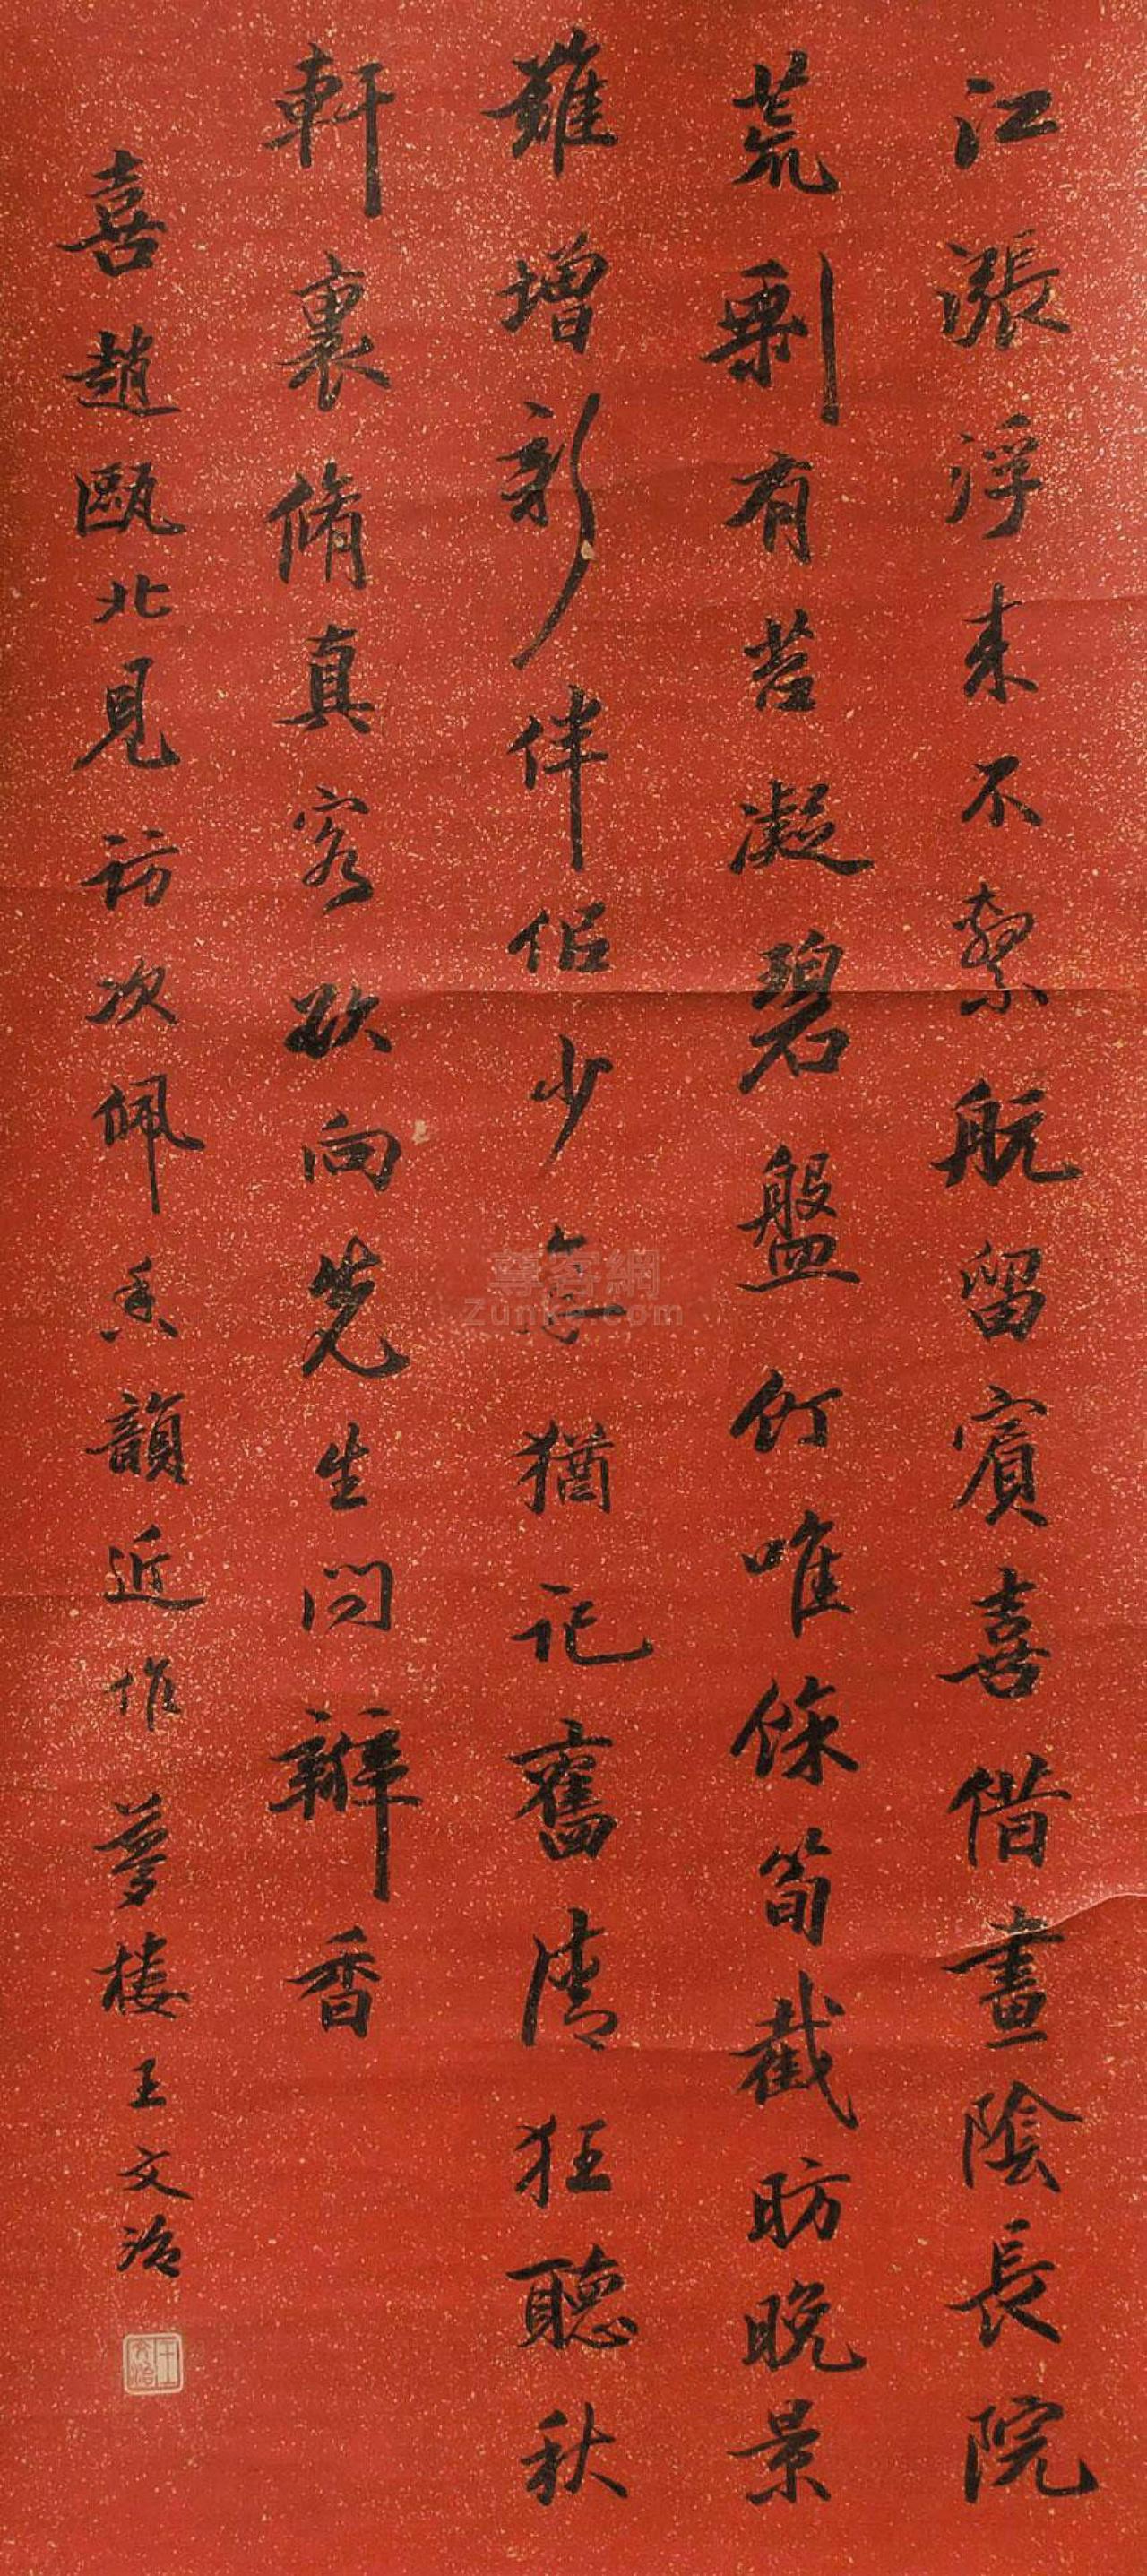 江漲浮来不繫航留賓喜借晝陰長院
荒剩有苔凝碧盤飣唯餘筍截肪晚景
雖增新伴侣少年猶記舊清狂聽秋
軒裏脩真客欲向先生問瓣香
喜趙甌北見訪次佩香韻近作夢樓王文治
王文治
尊客網
Zunke.com